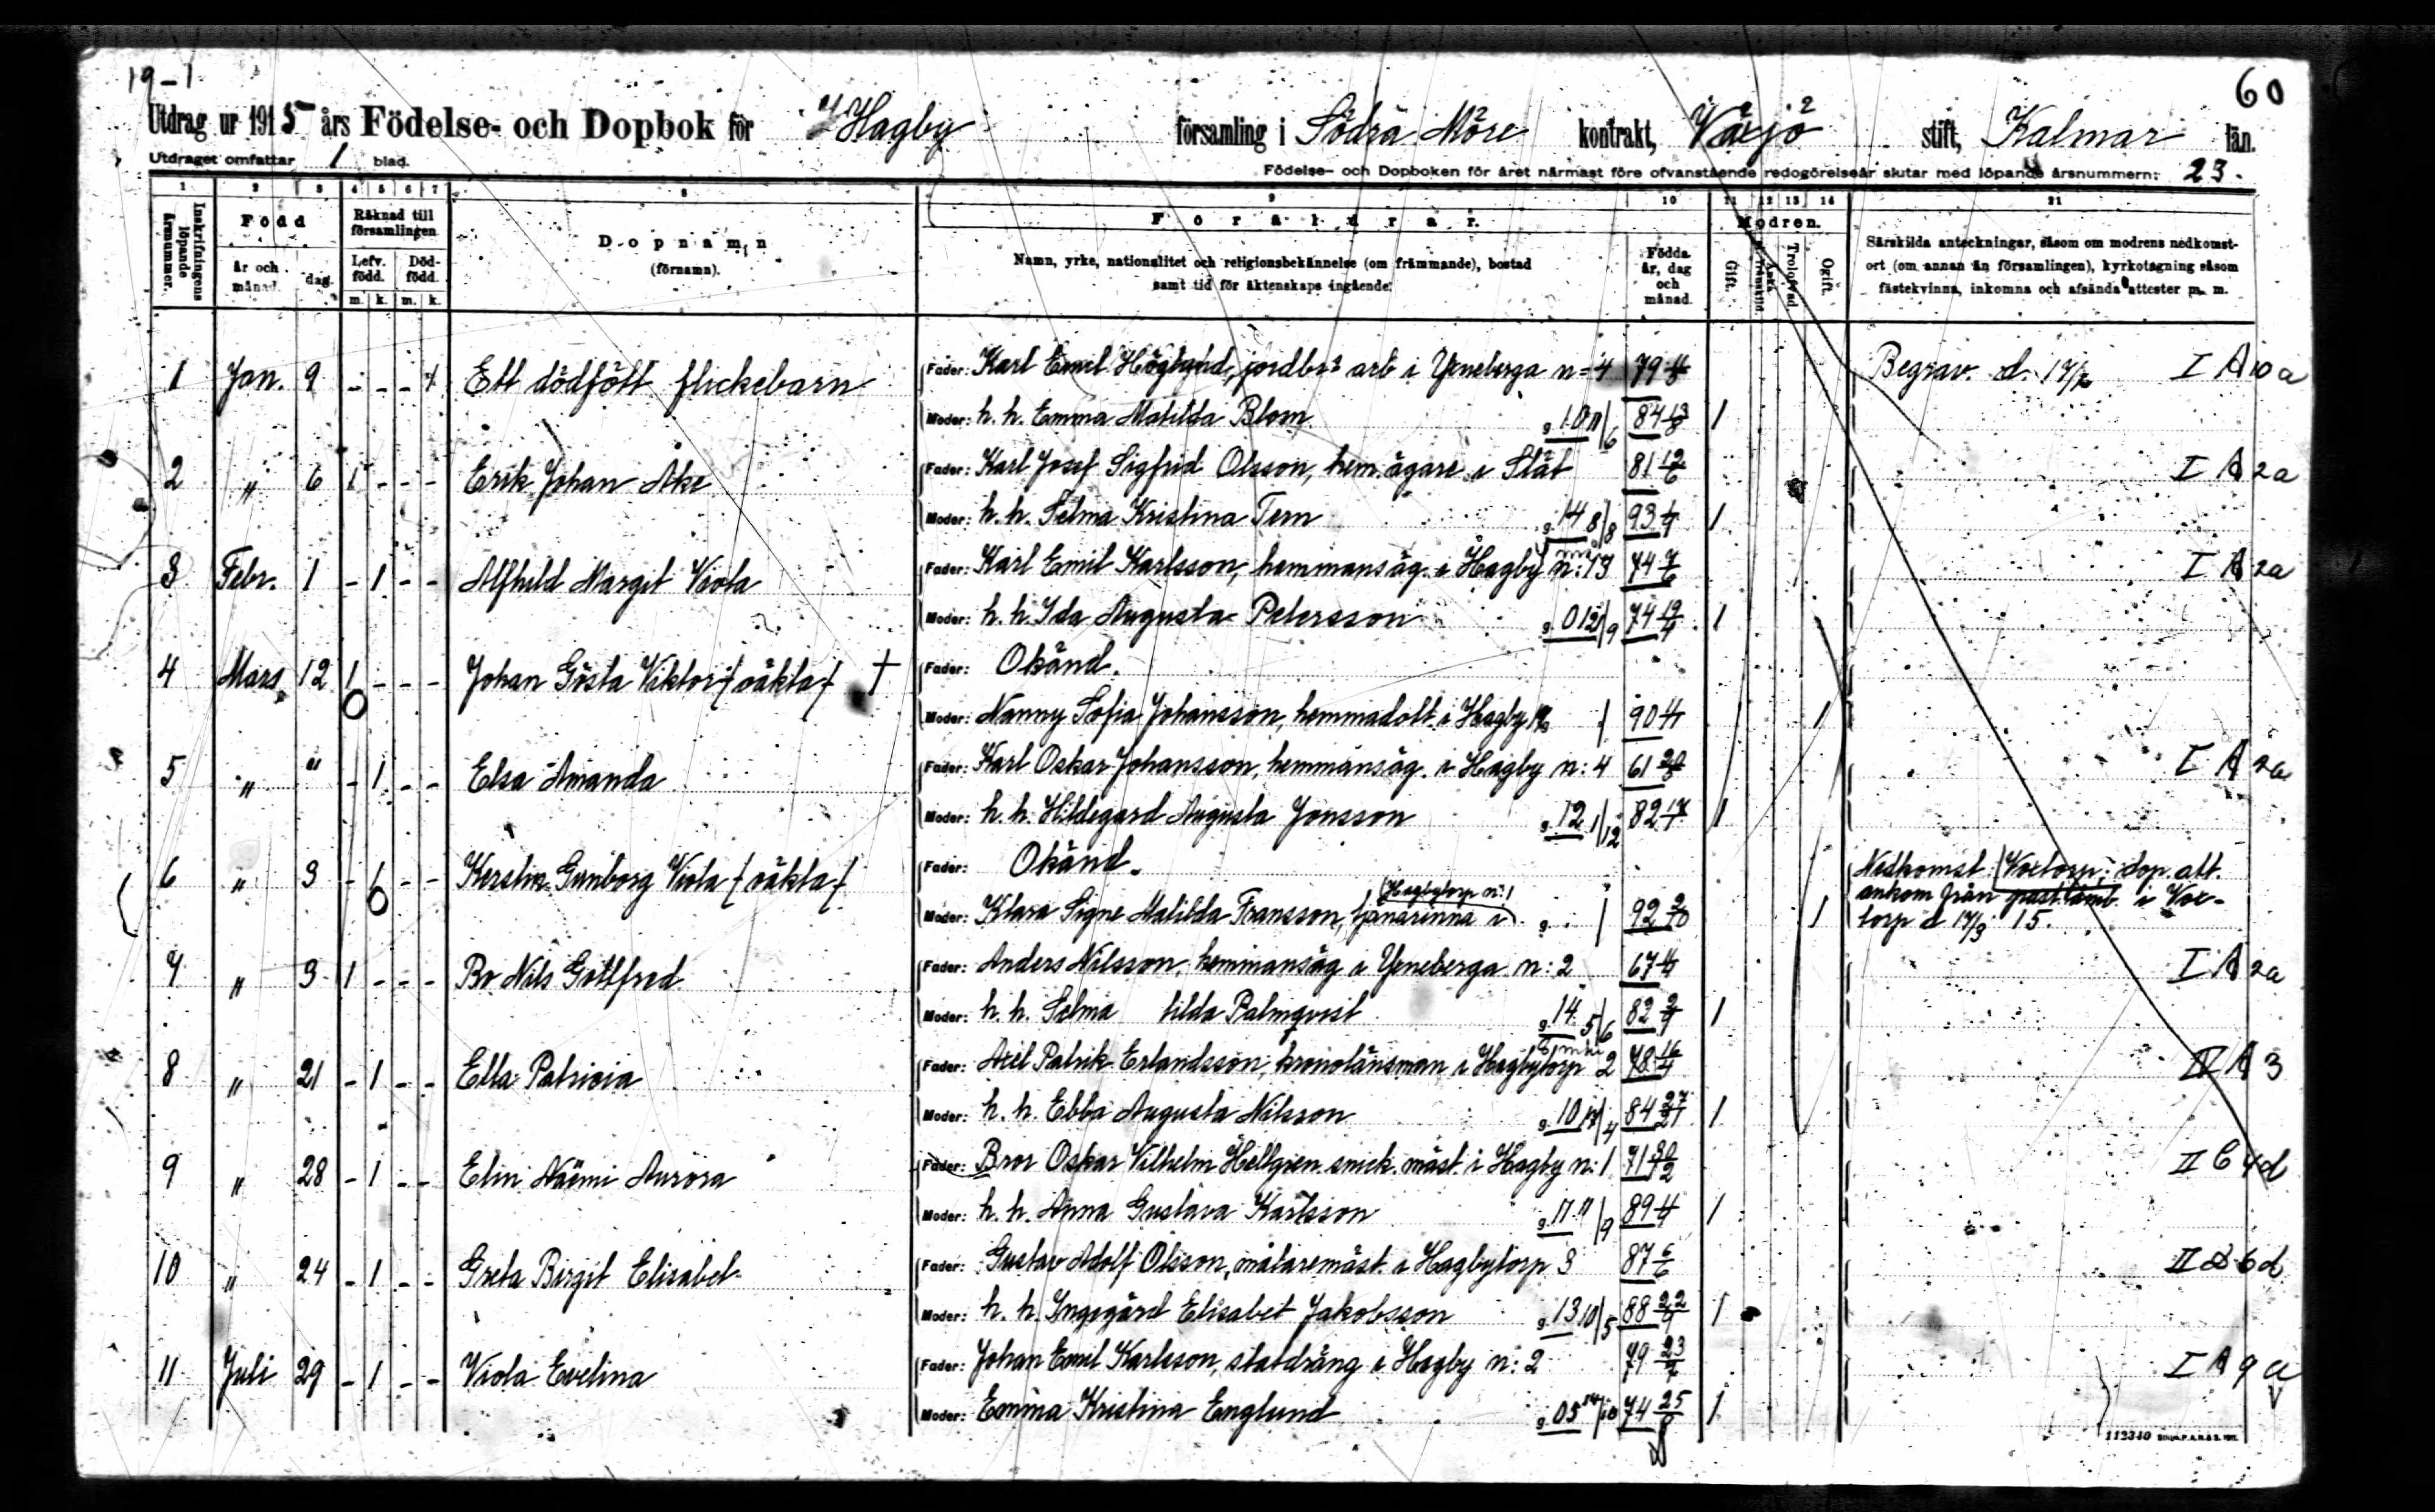 19-1
60
Utdrag ur 1915 års Födelse- och Dopbok för Hagby församling i Södra Möre kontrakt, Växjö stift, Kalmar län.
Utdraget omfattar 1 blad.
Födelse- och Dopboken för året närmast före ofvanstående redogörelseår slutar med löpande årsnummern: 23.
1 2 3 4 5 6 7 8 9 10 11 12 13 14 21
Inskrifningens löpande årsnummer.
Född
år och månad. dag.
Räknad till församlingen
Lefv. född. Död-född.
m. k. m. k.
Dopnamn
(förnamn).
Föräldrar.
Namn, yrke, nationalitet och religionsbekännelse (om främmande), bostad
samt tid för äktenskaps ingående.
Födda år, dag och månad.
Modren.
Gift. Trolofvad. Ogift.
Särskilda anteckningar, såsom om modrens nedkomst-
ort (om annan än församlingen), kyrkotagning såsom
fästekvinna, inkomna och afsända attester m. m.
1 Jan. 9 - - - 1 Ett dödfött flickebarn Fader: Karl Emil Högstrand, jordbr. arb i Yeneberga n=4 79 Begrav. d. I A 10 a
Moder: h. h. Emma Matilda Blom g. 10 11/6 84 13/8 1
2 " 6 1 - - - Erik Johan Åke Fader: Karl Josef Sigfrid Olsson, hem.ägare i Slät 81 12/6 I A 2a
Moder: h. h. Selma Kristina Tern g. 14 8/8 93 1
3 Febr. 1 - 1 - - Alfhild Margit Viola Fader: Karl Emil Karlsson, hemmansäg. i Hagby n:13 74 7/6 I A 2a
Moder: h. h. Ida Augusta Petersson g. 0 12/9 74 19/4 1
4 Mars 12 1 - - - Johan Gösta Viktor /oäkta/ † Fader: Okänd.
Moder: Nanny Sofia Johansson, hemmadott. i Hagby 90 1
5 " " - 1 - - Elsa Amanda Fader: Karl Oskar Johansson, hemmansäg. i Hagby n:4 61 20/8 I A 2a
Moder: h. h. Hildegard Augusta Jonsson g. 12 1/12 82 1
6 " 3 - 1 - - Kerstin Gunborg Viola /oäkta/ Fader: Okänd. Nedkomst Voxtorp; dop. att.
Hagbytorp n:1 ankom från past.ämb. i Vox-
Moder: Klara Signe Matilda Fransson, tjänarinna i g. 92 2/10 1 torp d 17/3 15.
7 " 3 1 - - - Bo Nils Gottfred Fader: Anders Nilsson, hemmansäg i Yeneberga n:2 67 I A 2a
Moder: h. h. Selma tilda Palmqvist g. 14 5/6 82 1
8 " 21 - 1 - - Ella Patricia Fader: Axel Patrik Erlandsson, kronolänsman i Hagbytorp 2 78 16/4 IV A 3
Moder: h. h. Ebba Augusta Nilsson g. 10 84 27/21 1
9 " 28 - 1 - - Elin Naëmi Aurora Fader: Bror Oskar Vilhelm Hellgren snick. mäst. i Hagby n:1 71 30/12 II C 4d
Moder: h. h. Anna Gustava Karlsson g. 11 11/9 89 1
10 " 24 - 1 - - Greta Birgit Elisabet Fader: Gustav Adolf Olsson, målaremäst. i Hagbytorp 3 87 6/6 II 6d
Moder: h. h. Ingegärd Elisabet Jakobsson g. 13 10/5 88 22/9 1
11 Juli 29 - 1 - - Viola Evelina Fader: Johan Emil Karlsson, statdräng i Hagby n:2 79 I A 9 a
Moder: Emma Kristina Englund g. 05 14/10 74 25/8 1
113340